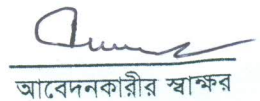 আবেদনকারীর স্বাক্ষর